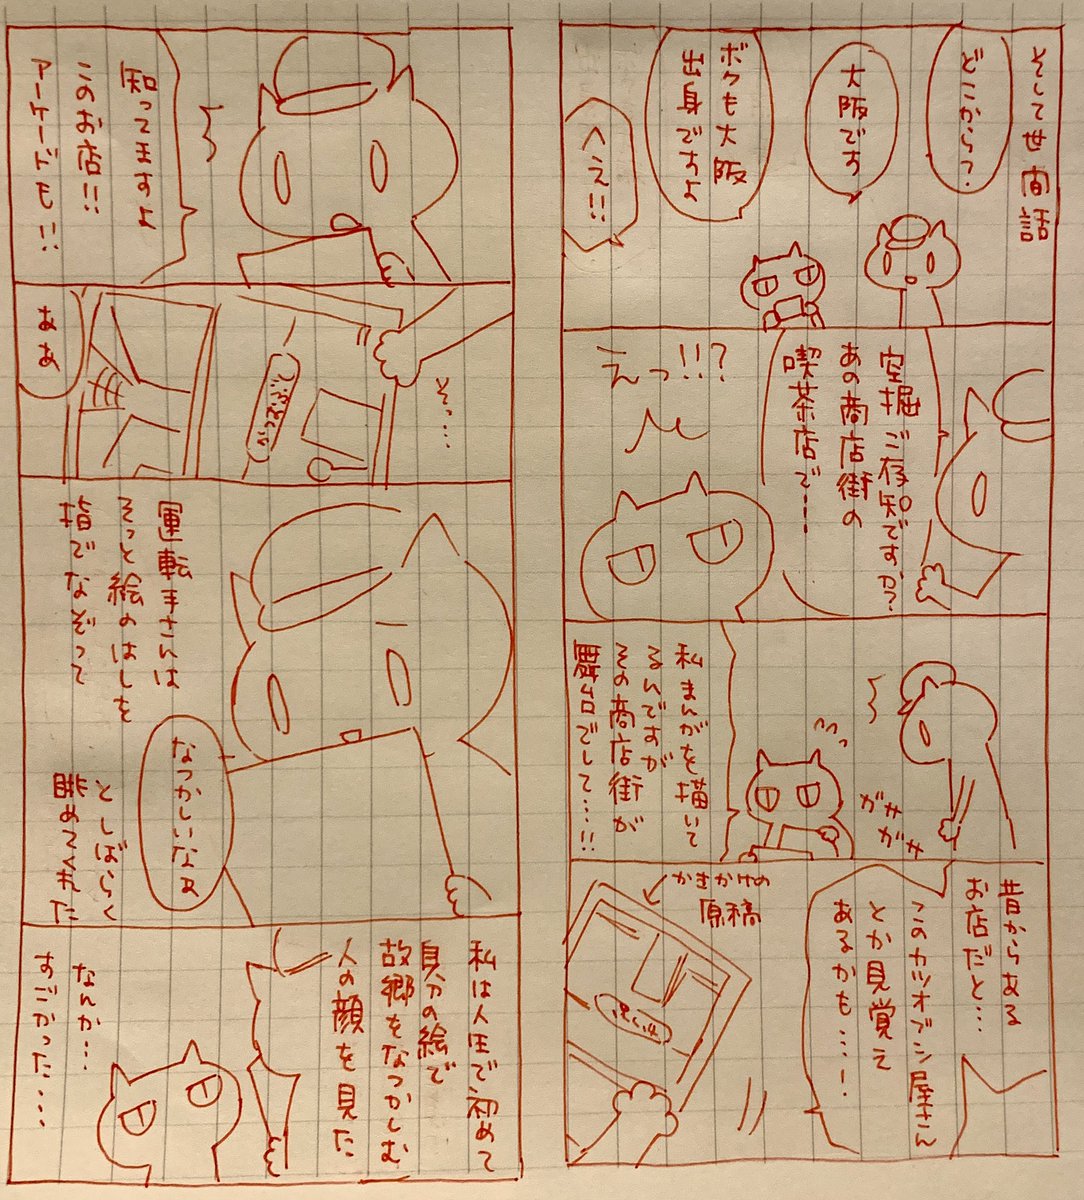 そして世間話
どこから?
大阪です
ボクも大阪
出身ですよ
へえ!!
空堀ご存知ですか?
あの商店街の
喫茶店で…
えっ!!?
ガサ
ガサ
私まんがを描いて
るんですが
その商店街が
舞台でして…!!
昔からある
お店だと…
このカツオブシ屋さん
とか見覚え
あるかも…!
かきかけの
原稿
知ってますよ
このお店!!
アーケードも!!
そっ…
かつおぶし
ああ
運転手さんは
そっと絵のはしを
指でなぞって
なつかしいなぁ
としばらく
眺めてくれた
私は人生で初めて
自分の絵で
故郷をなつかしむ
人の顔を見た
なんか…
すごかった…